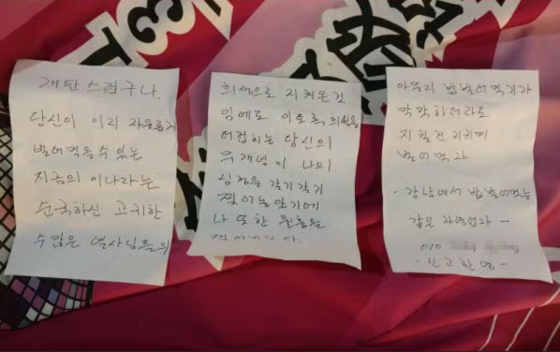 개탄스럽구나.
당신이 이리 자유롭게
벌어먹을수 있는
지금의 이나라는
순국하신 고귀한
수많은 열사님들의
희생으로 지켜온것
임에도 이토록 희생을
더럽히는 당신의
무개념이 나의
심장을 갈기갈기
찢어놓았기에
나 또한 원통을
아무리 밥벌어먹기가
막막하더라도
지킬건 지키며
벌어먹자
- 강남에서 밥벌어먹는
같은 자영업자 -
010
- 신고한명 -